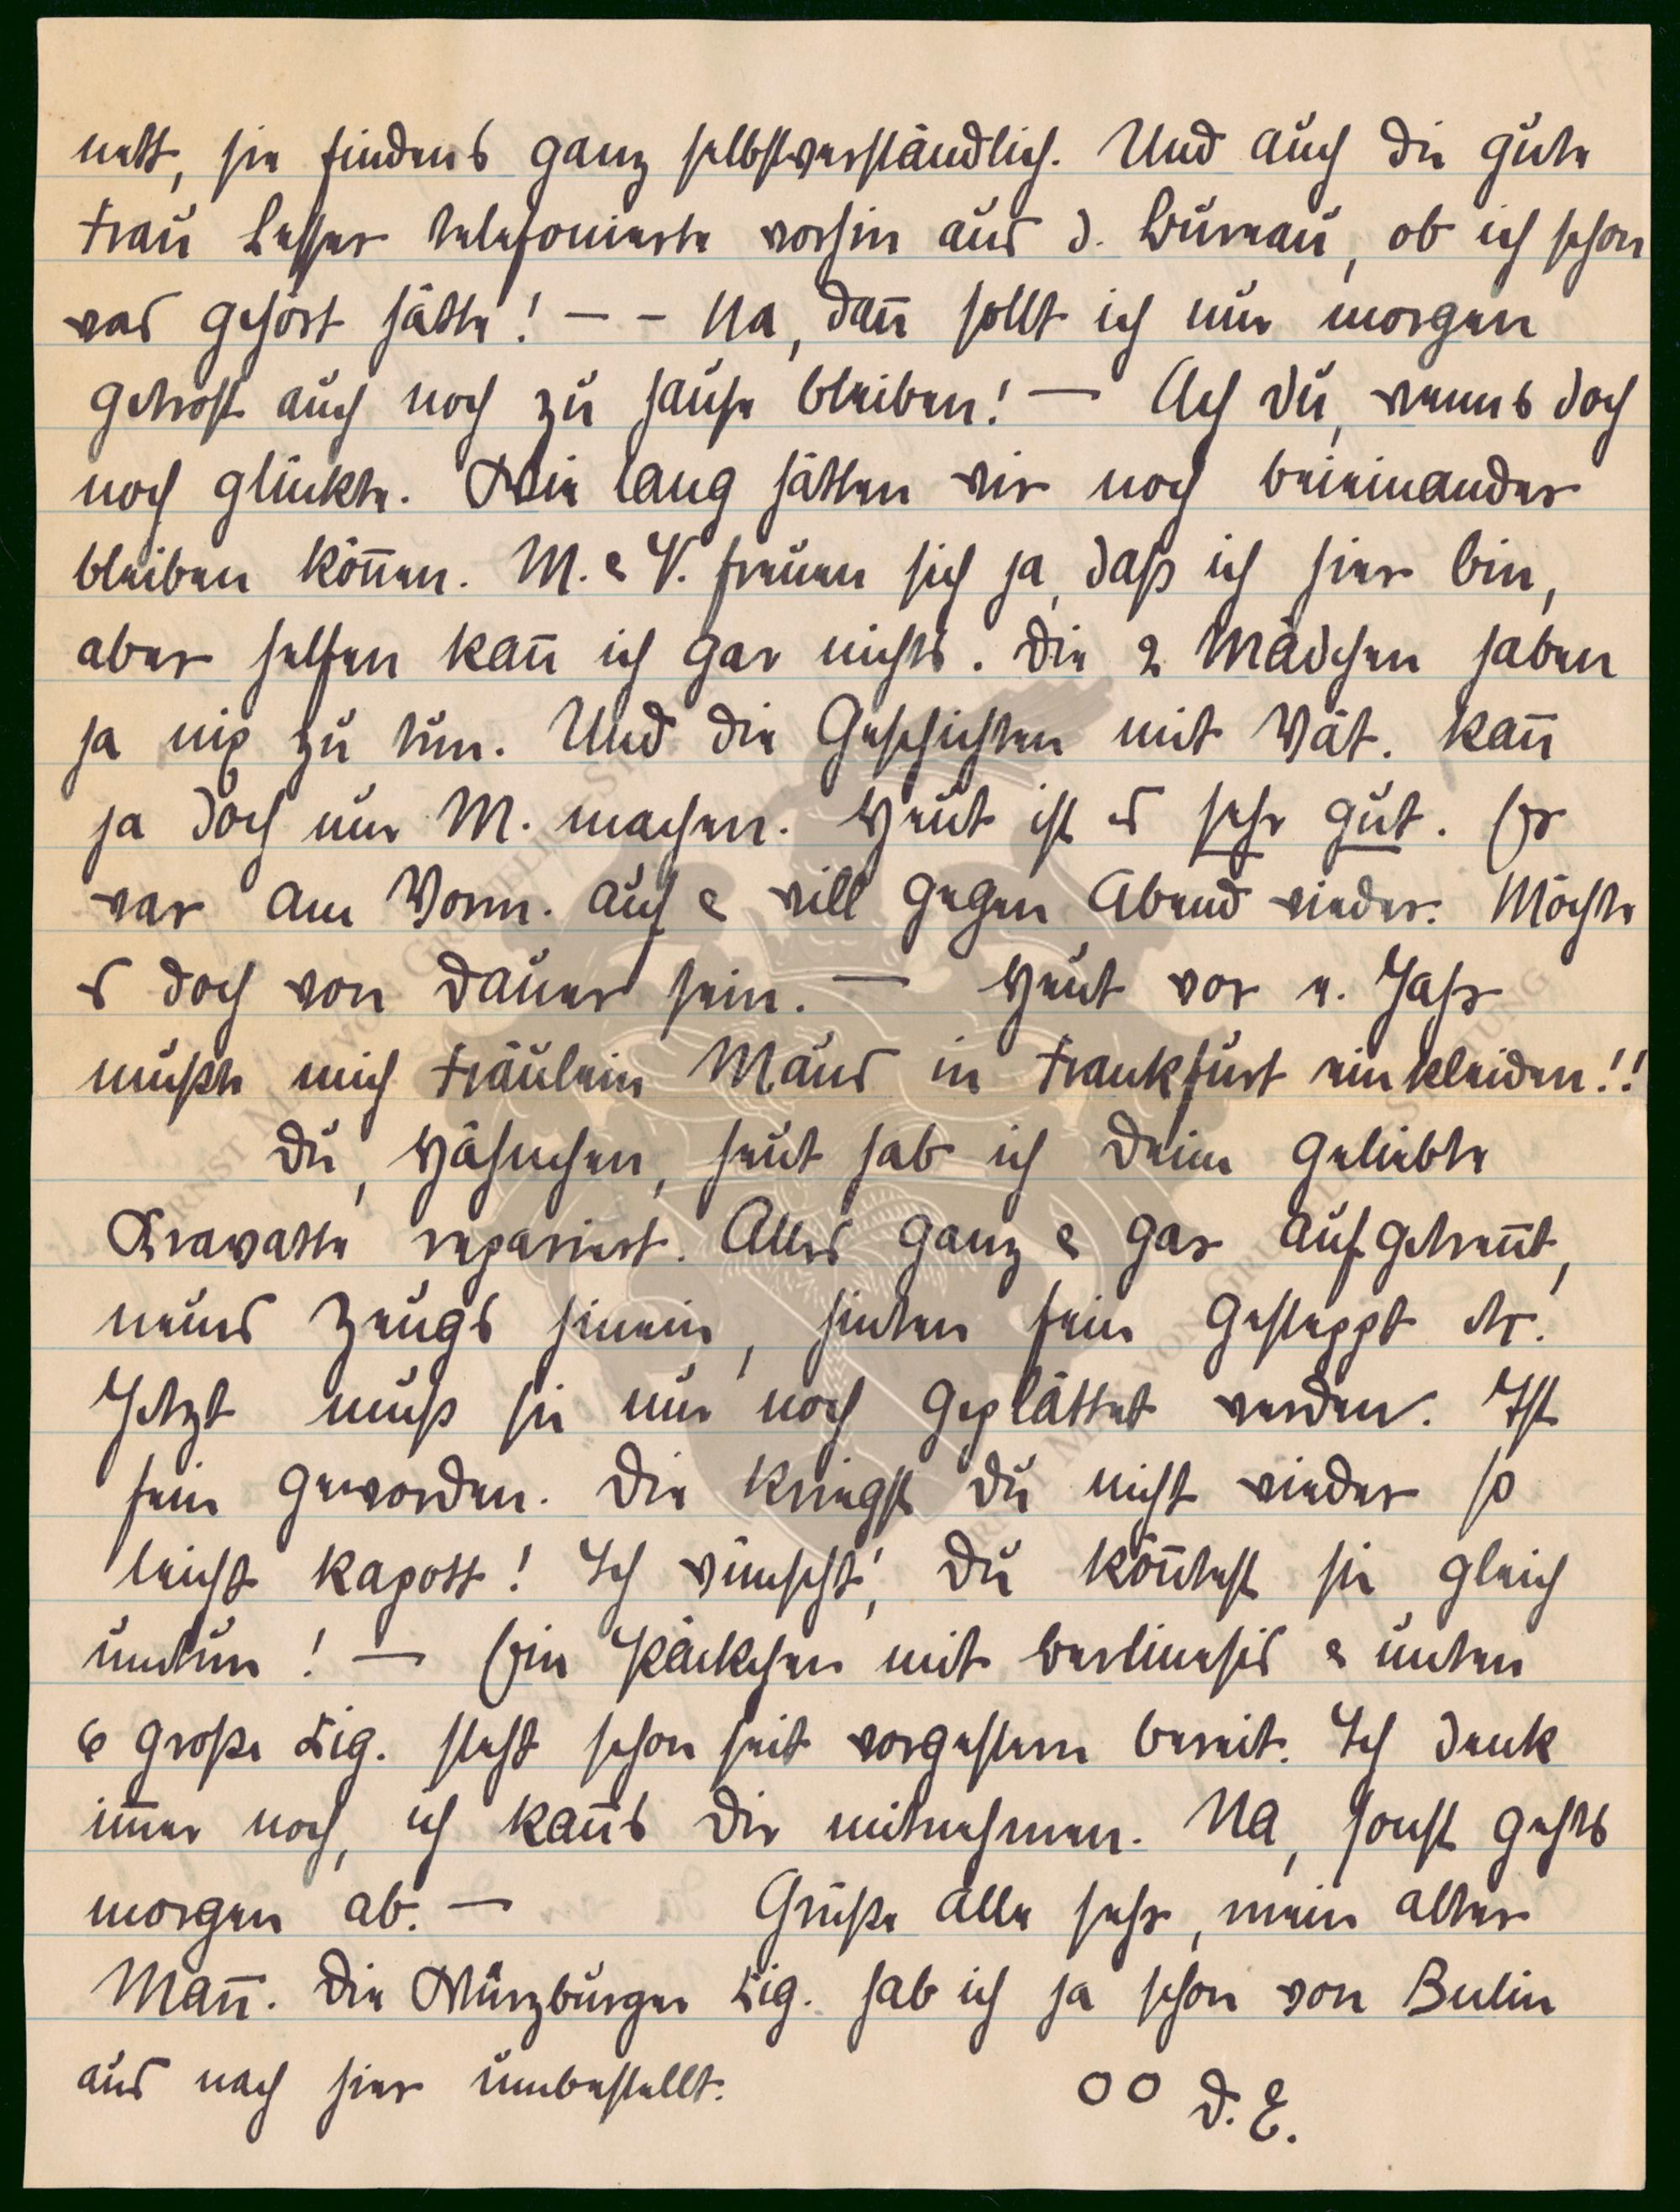 nett, sie findens ganz selbstverständlich. Und auch die gute
Frau Lesser telefonierte vorhin aus d. Bureau, ob ich schon
was gehört hätte! – – Na, dan̄ sollt ich nur morgen
getrost auch noch zu hause bleiben! — Ach Du, wenns doch
noch glückte. Wie lang hätten wir noch beieinander
bleiben kön̄en. M. & V. freuen sich ja, daß ich hier bin,
aber helfen kan̄ ich gar nichts. Die 2 Mädchen haben
ja nix zu tun. Und die Geschichten mit Vät. kan̄
ja doch nur M. machen. Heut ist es sehr gut. Er
war am Vorm. auf & will gegen Abend wieder. Möchte
es doch von Dauer sein. — Heut vor e. Jahr
mußte mich Fräulein Maus in Frankfurt einkleiden!!
Du, Häschen, heut hab ich Deine geliebte
Krawatte repariert. Alles ganz & gar aufgetren̄t,
neues Zeugs hinein, hinten fein gesteppt etc.
Jetzt muß sie nur noch geplättet werden. Ist
fein geworden. Die kriegst Du nicht wieder so
leicht kapott! Ich wünscht', Du kön̄test sie gleich
umtun! — Ein Päckchen mit & unten
6 große Zig. steht schon seit vorgestern bereit. Ich denk
im̄er noch, ich kan̄s Dir mitnehmen. Na, sonst gehts
morgen ab. — Grüße alle sehr, mein alter
Man̄. Die Würzburger Zig. hab ich ja schon von Berlin
aus nach hier umbestellt. OO D. E.
ERNST MAY VON GIRSEWALD STIFTUNG